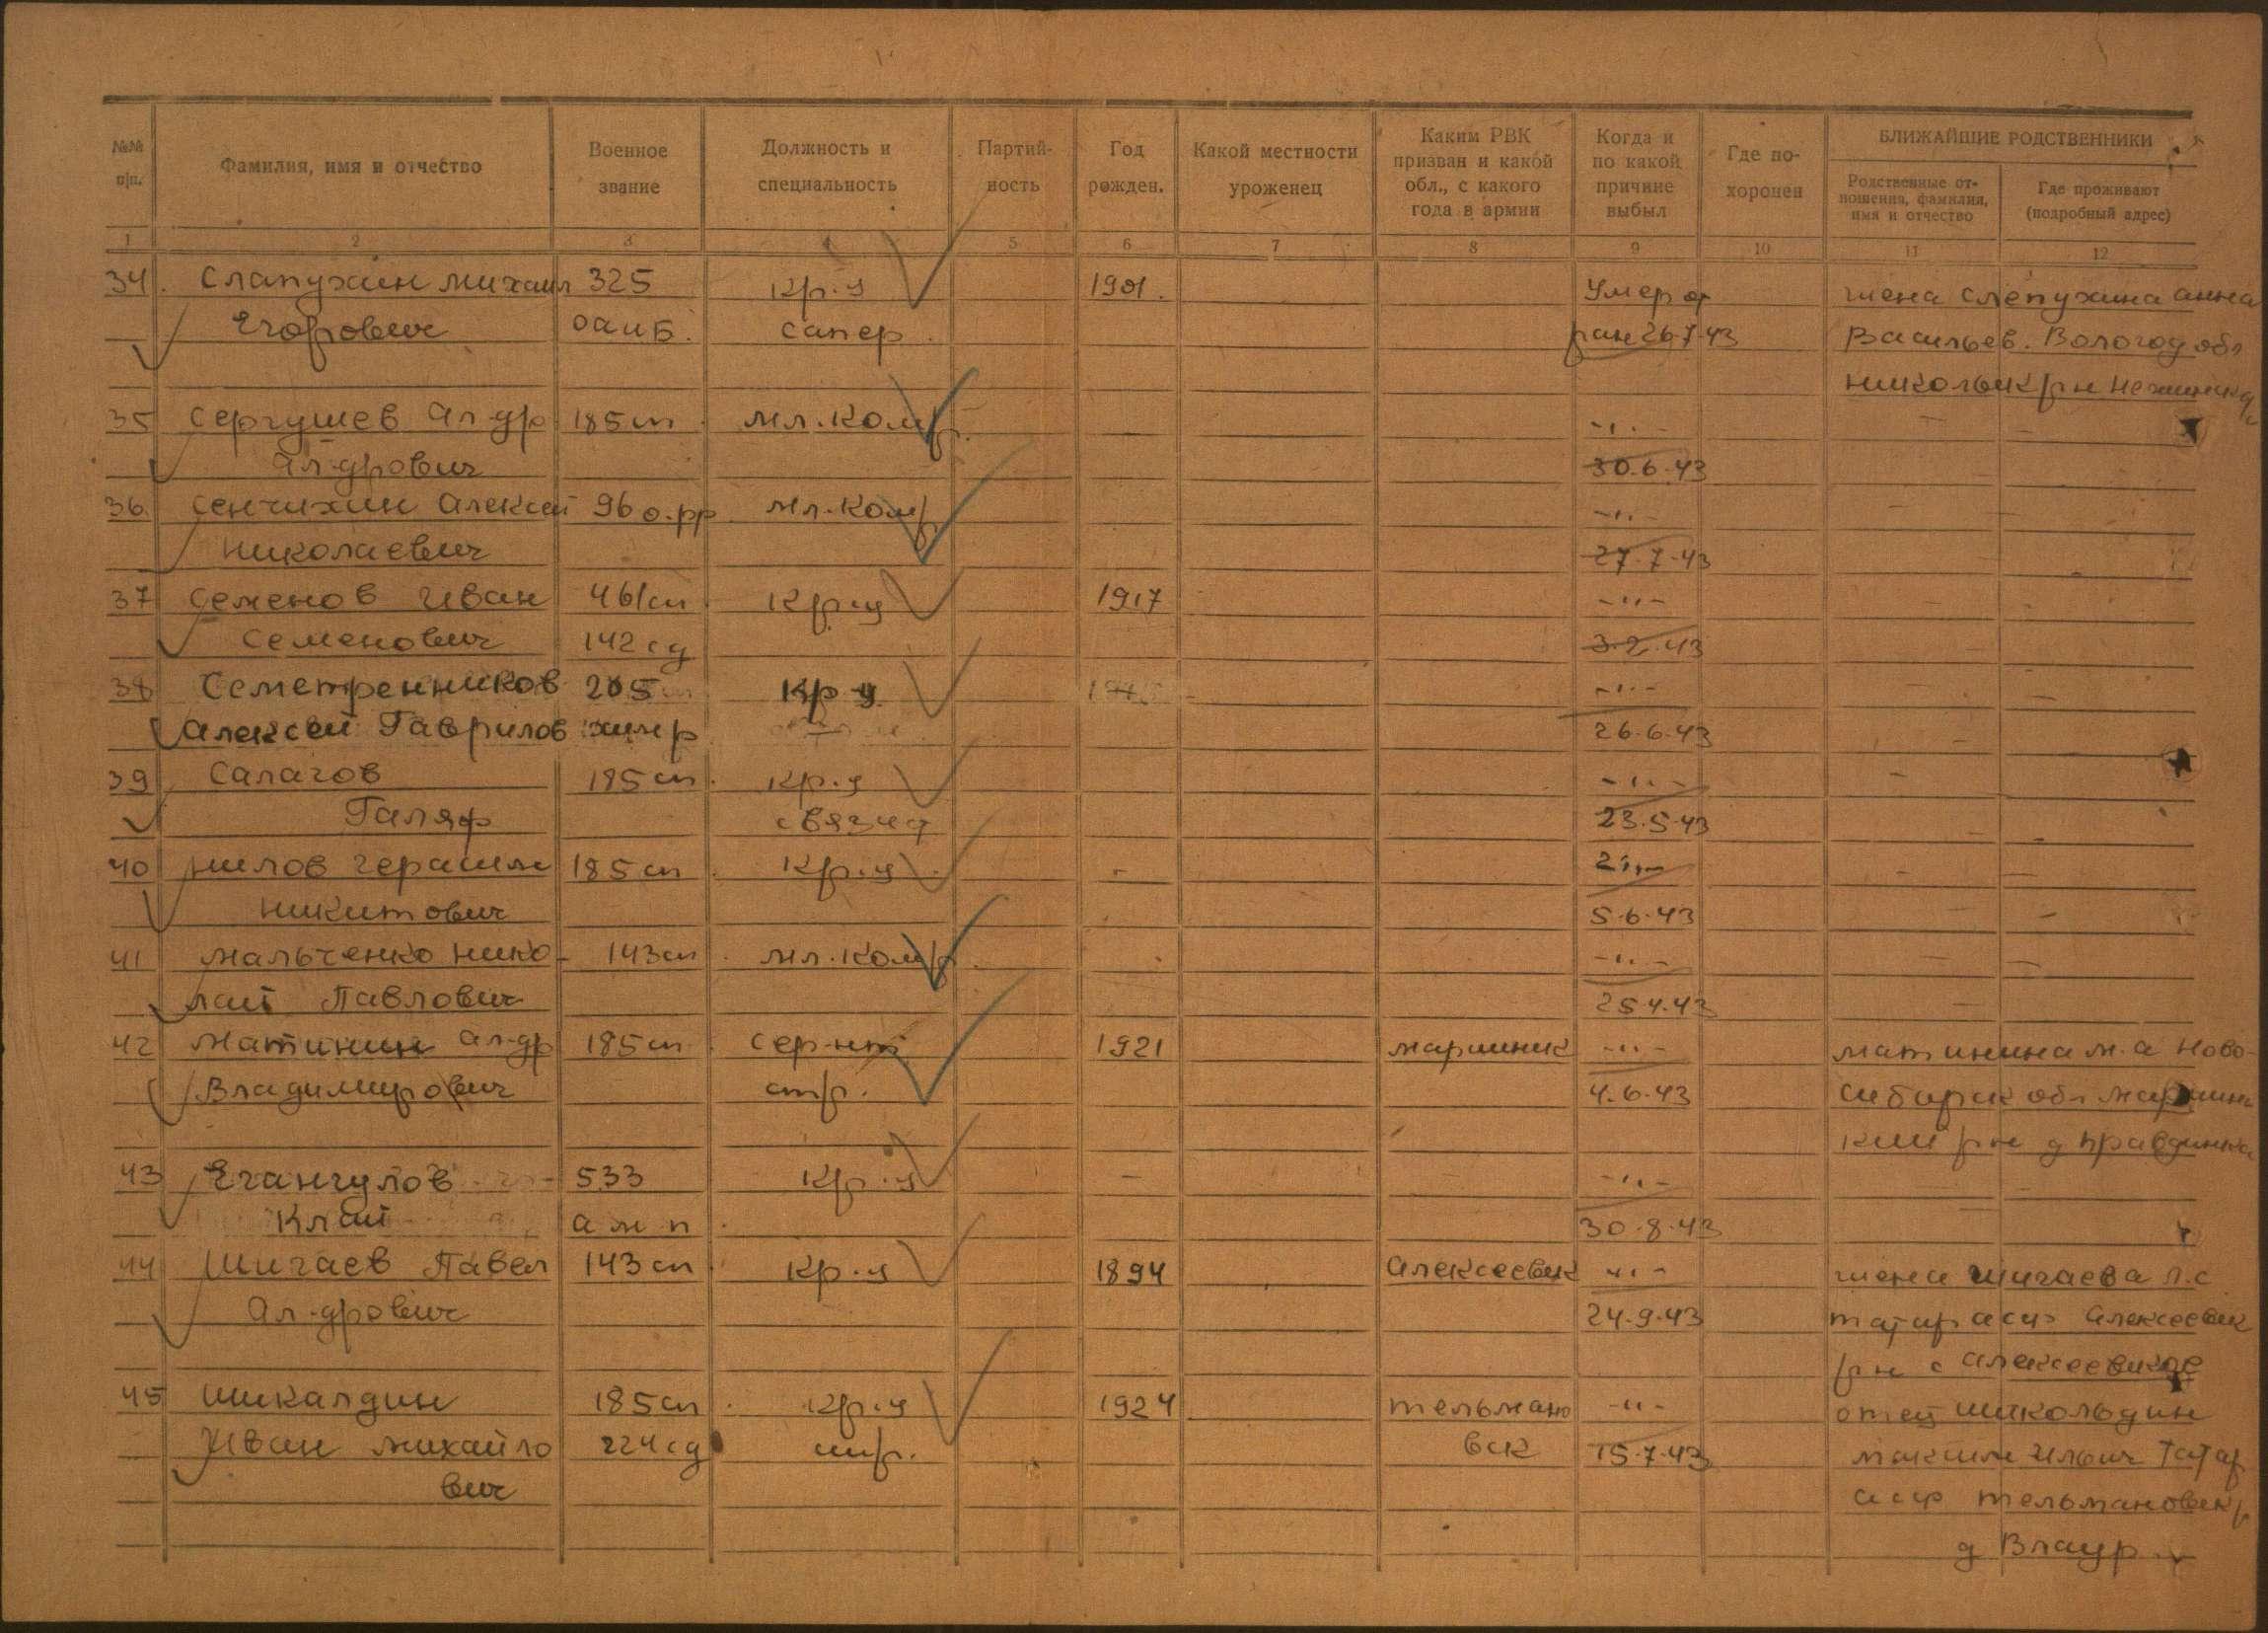 №№ п/п. Фамилия, имя и отчество Военное звание Должность и специальность Партий-ность Год рожден. Какой местности уроженец Каким РВК призван и какой обл., с какого года в армии Когда и по какой причине выбыл Где по-хоронен БЛИЖАЙШИЕ РОДСТВЕННИКИ
Родственные от-ношения, фамилия, имя и отчество Где проживают (подробный адрес)
1 2 3 4 5 6 7 8 9 10 11 12
34. Слапухин Михаил 325 Кр-ц 1901. Умер от жена Слепухина Анна
Егорович ОАИБ. сапер ран 26.7.43 Васильев. Вологод обл
Никольск р-н
35 Сергушев Ал-др 185 сп Мл. Ком-р -"-
Ал-дрович 30.6.43
36. Сенчихин Алексей 96 о.рр Мл. Ком-р -"-
Николаевич 27.7.43
37 Семенов Иван 461 сп Кр-ц 1917 -"-
Семенович 142 сд 3.2.43
38 Семетренников 205 Кр-ц -"-
Алексей Гаврилов 26.6.43
39 Салагов 185 сп. Кр-ц -"-
Галяф связист 23.5.43
40 Нилов Герасим 185 сп Кр-ц -"-
Никитович 5.6.43
41 Мальченко Нико- 143 сп Мл. Ком-р -"-
лай Павлович 25.4.43
42 Матинин Ал-др 185 сп Сер-нт 1921 Мариинск -"- Матинина М.А Ново-
Владимирович стр. 4.6.43 сибирск обл Мариинс
кий р-н д Правдинка
43 Егангулов 533 Кр-ц - -"-
Клай а м п 30.8.43
44 Шигаев Павел 143 сп Кр-ц 1894 Алексеевск -"- жена Шигаева Л.С
Ал-дрович 24.9.43 Татар асср Алексеевск
р-н с Алексеевское
45 Шикалдин 185 сп Кр-ц 1924 Тельмано -"- отец Шикольдин
Иван Михайло 224 сд стр. вск 15.7.43 Максим Ильич Татар
вич асср Тельмановск р
д